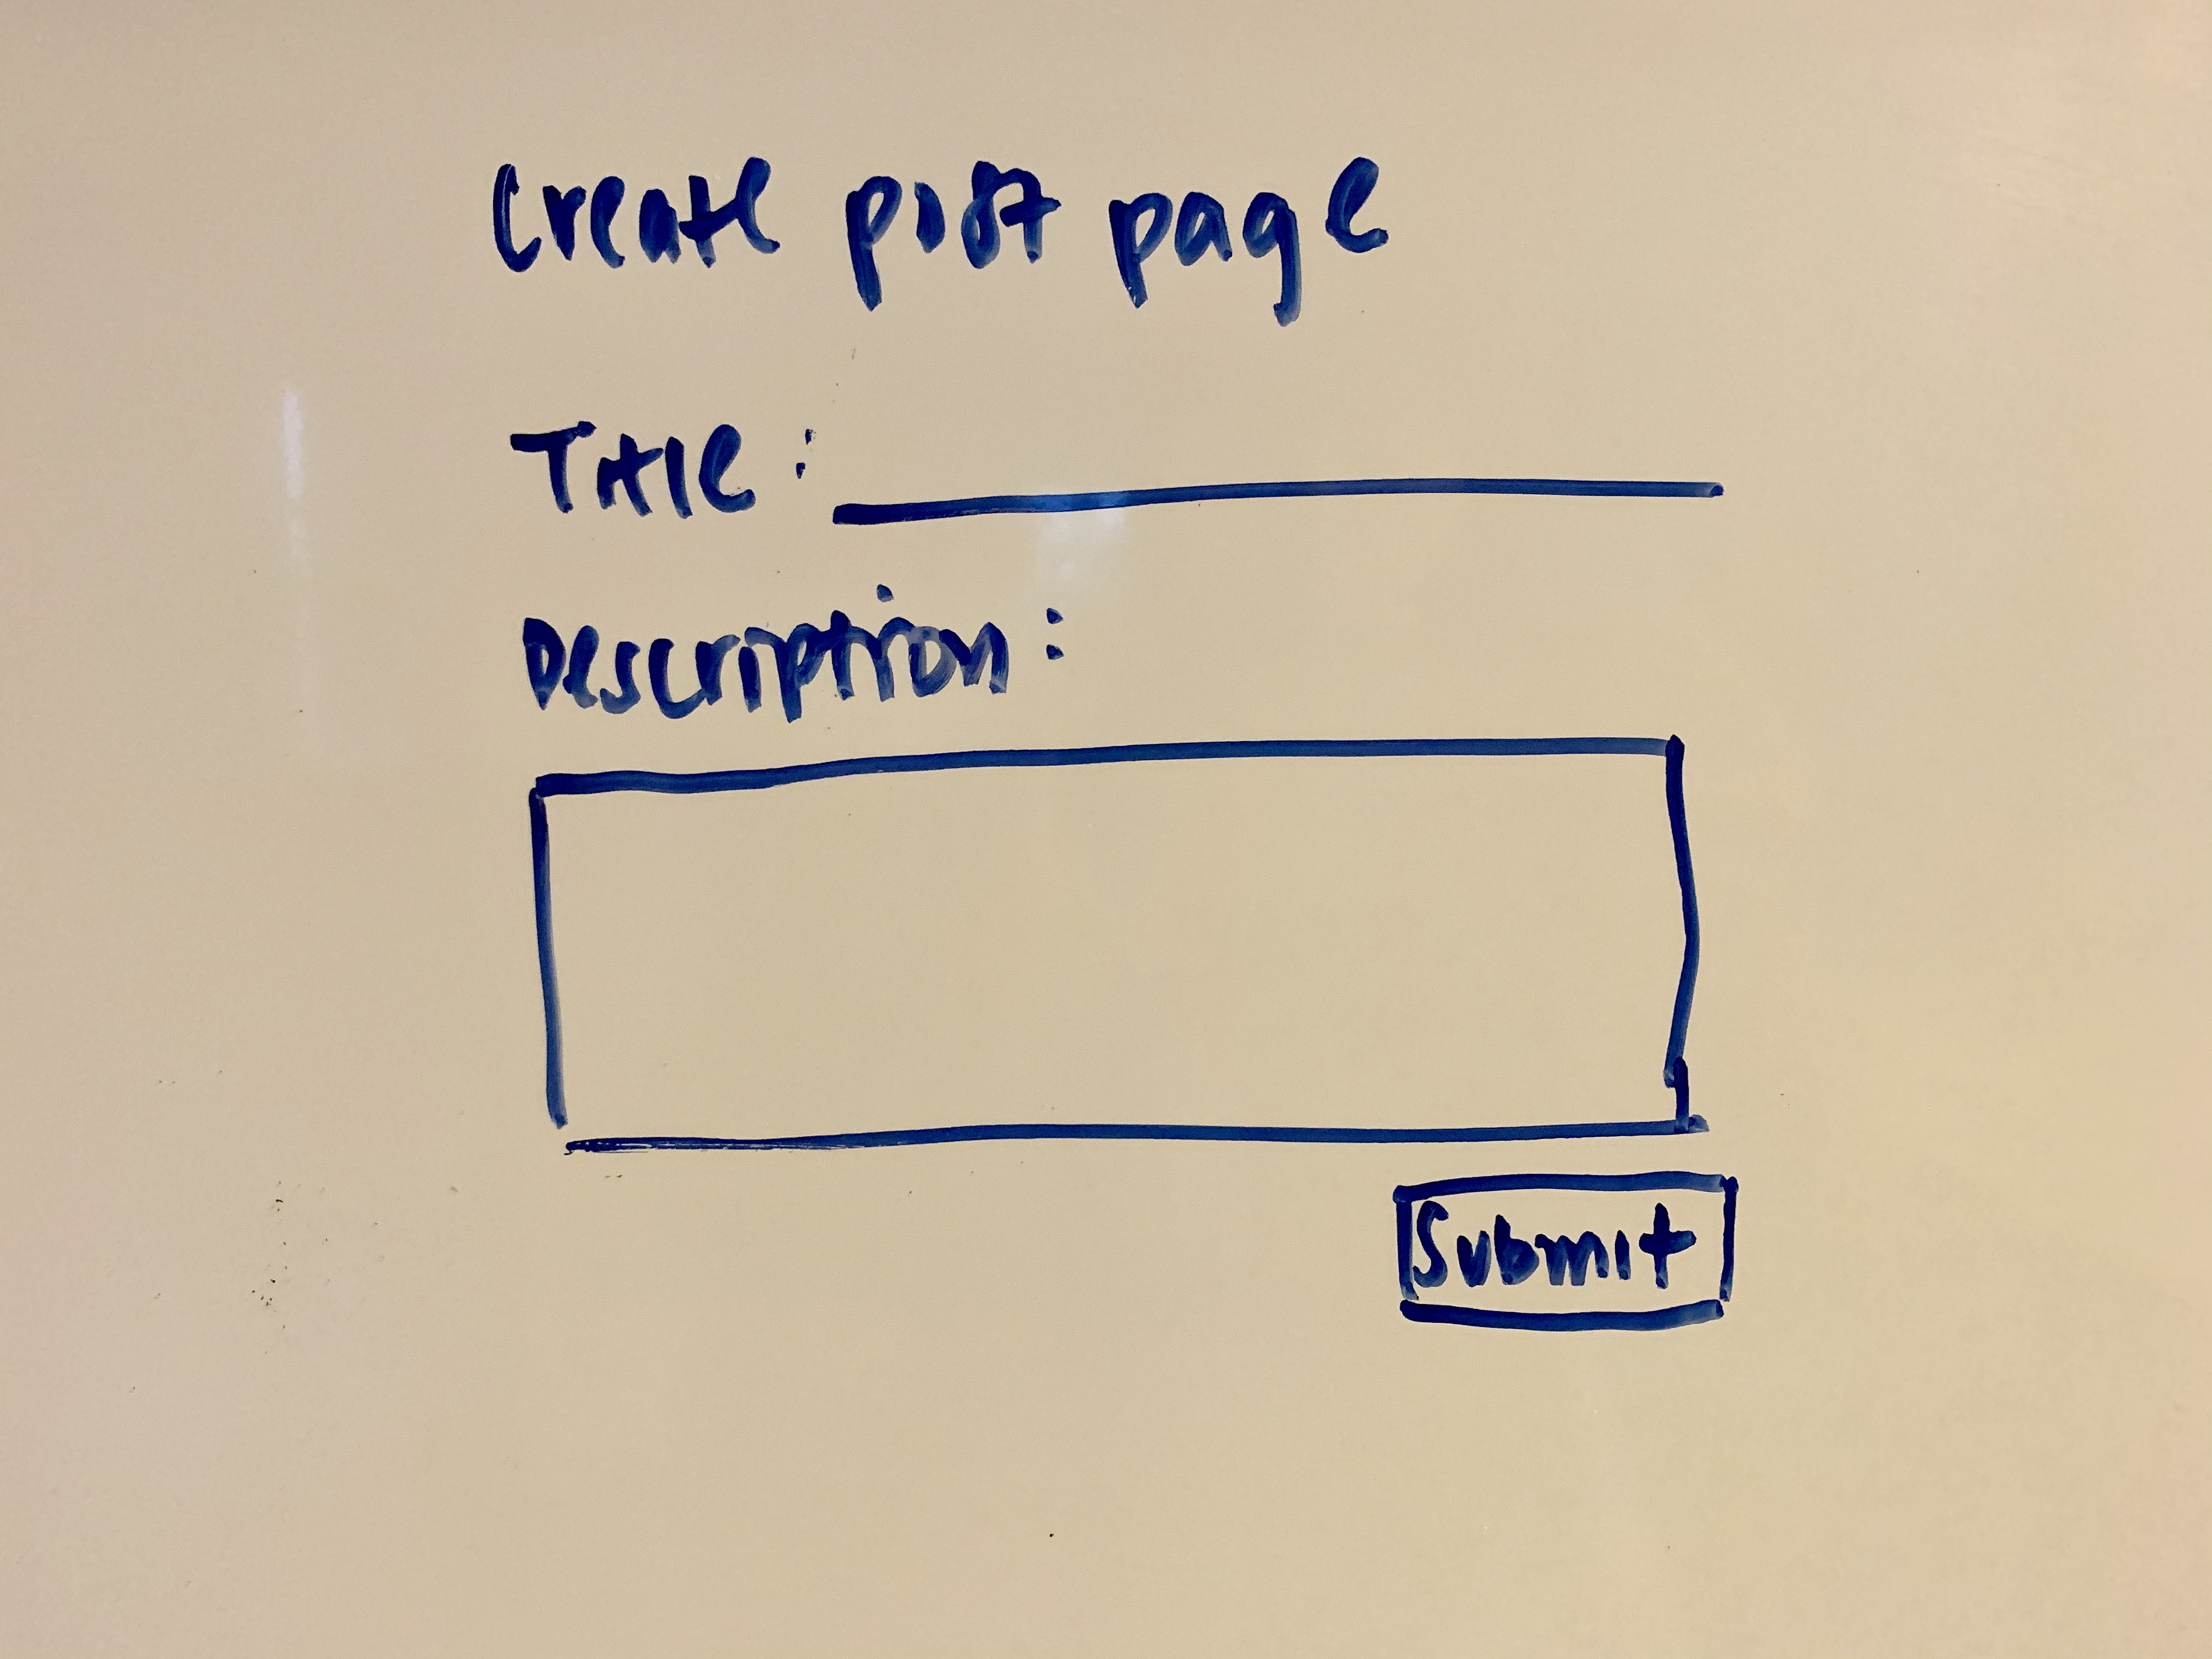 Create post page
Title:
Description:
Submit